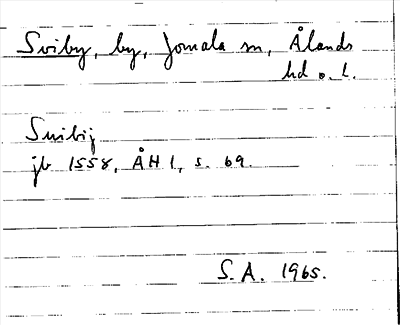 Sviby, by, Jomala sn, Ålands
hd o. l.
Suibij
jb 1558, ÅH 1, s. 69.
S.A. 1965.